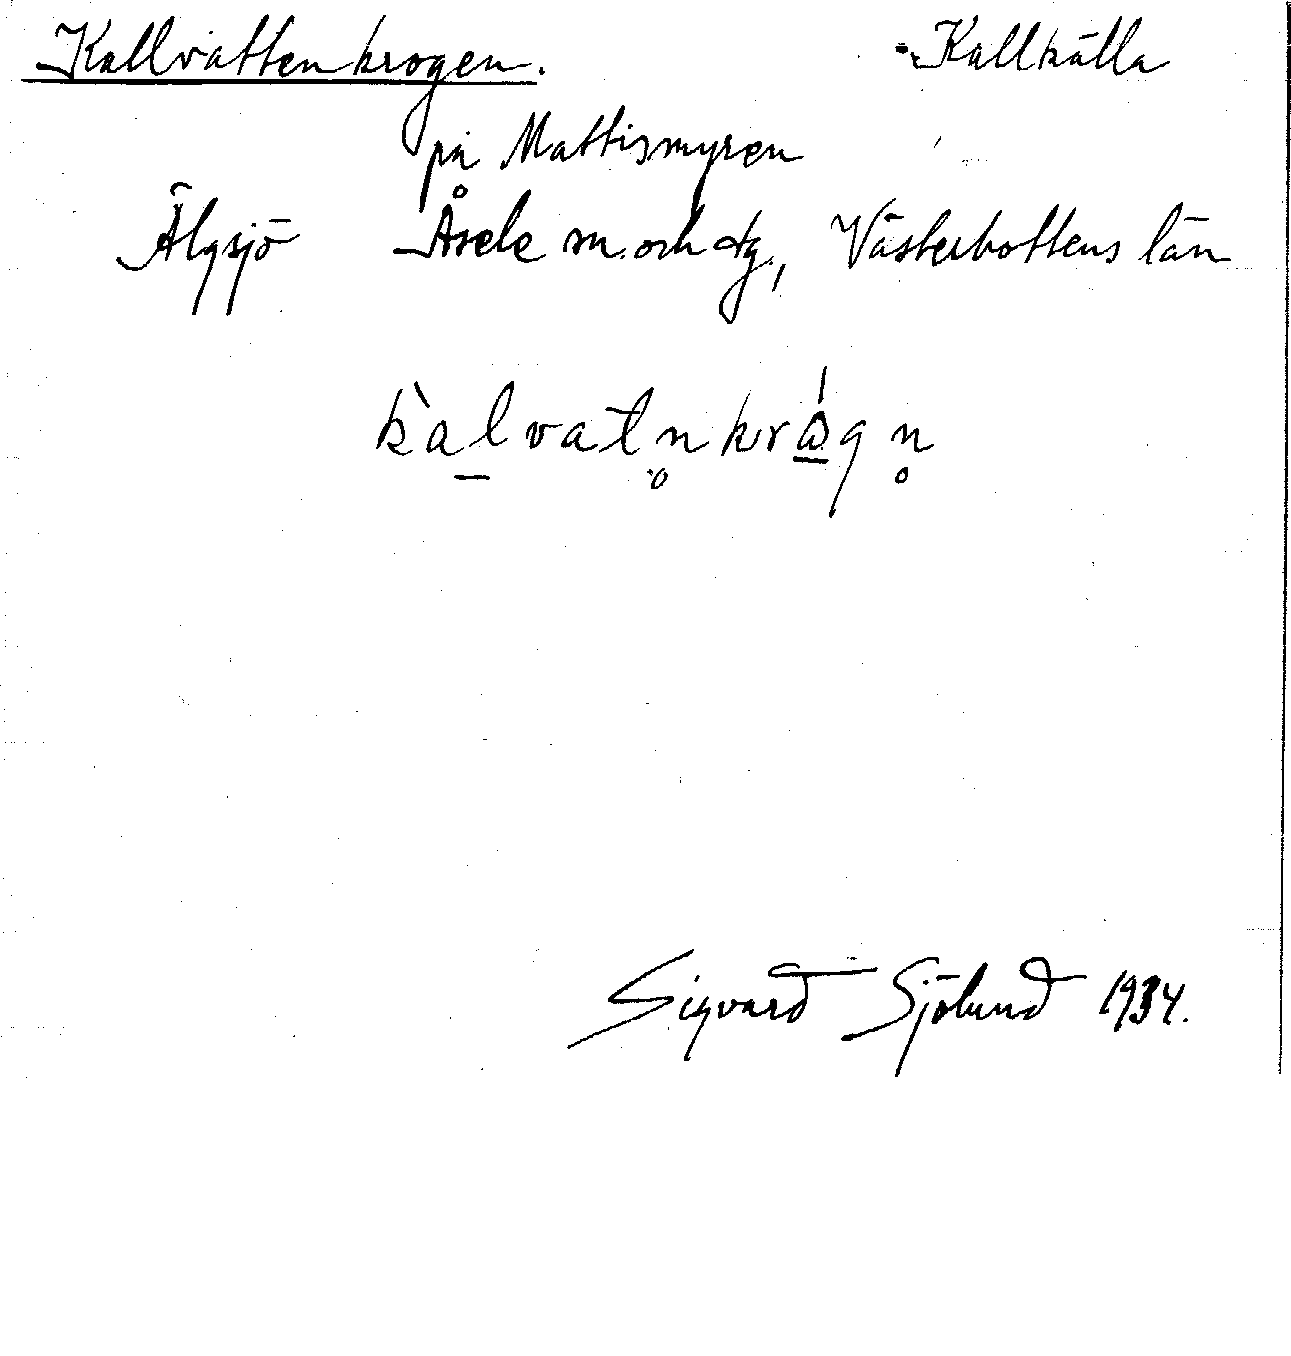 Kallvattenkrogen. Kallkälla
på Mattismyren
Älgsjö Åsele sn. och dg., Västerbottens län
kalvatnkrågn
Sigvard Sjölund 1934.